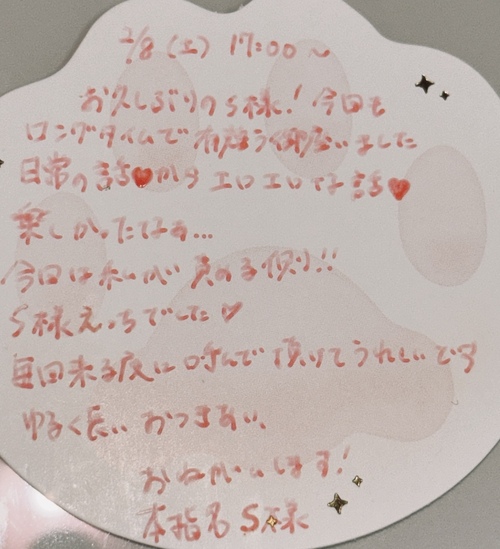 2/8(土) 17:00〜
お久しぶりのS様!今回も
ロングタイムで有難う御座いました
日常の話♥からエロエロな話♥
楽しかったなぁ...
今回は私が責める側!!
S様えっちでした♡
毎回来る度に呼んで頂けてうれしいです
ゆるく長いおつきあい、
おねがいします!
本指名 S様